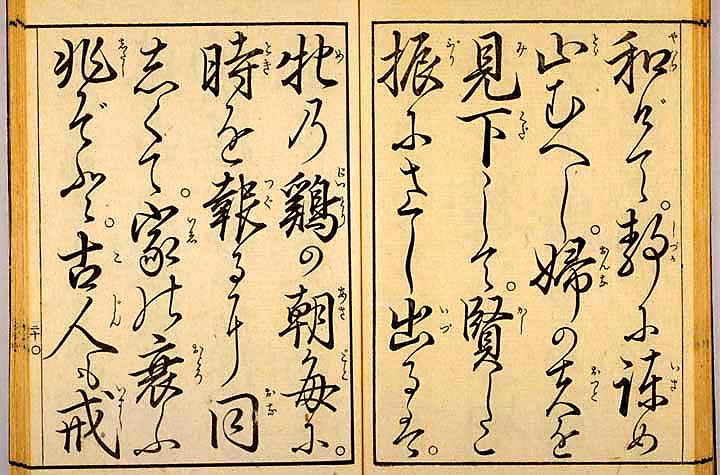 和げて。静に諌め
止むべし。婦の夫を
見下して。賢こ
振にさし出るは。
牝乃鶏の朝毎に。
時を報るに同
しくて。家の衰ふ
兆ぞと。古人も戒
二十〇